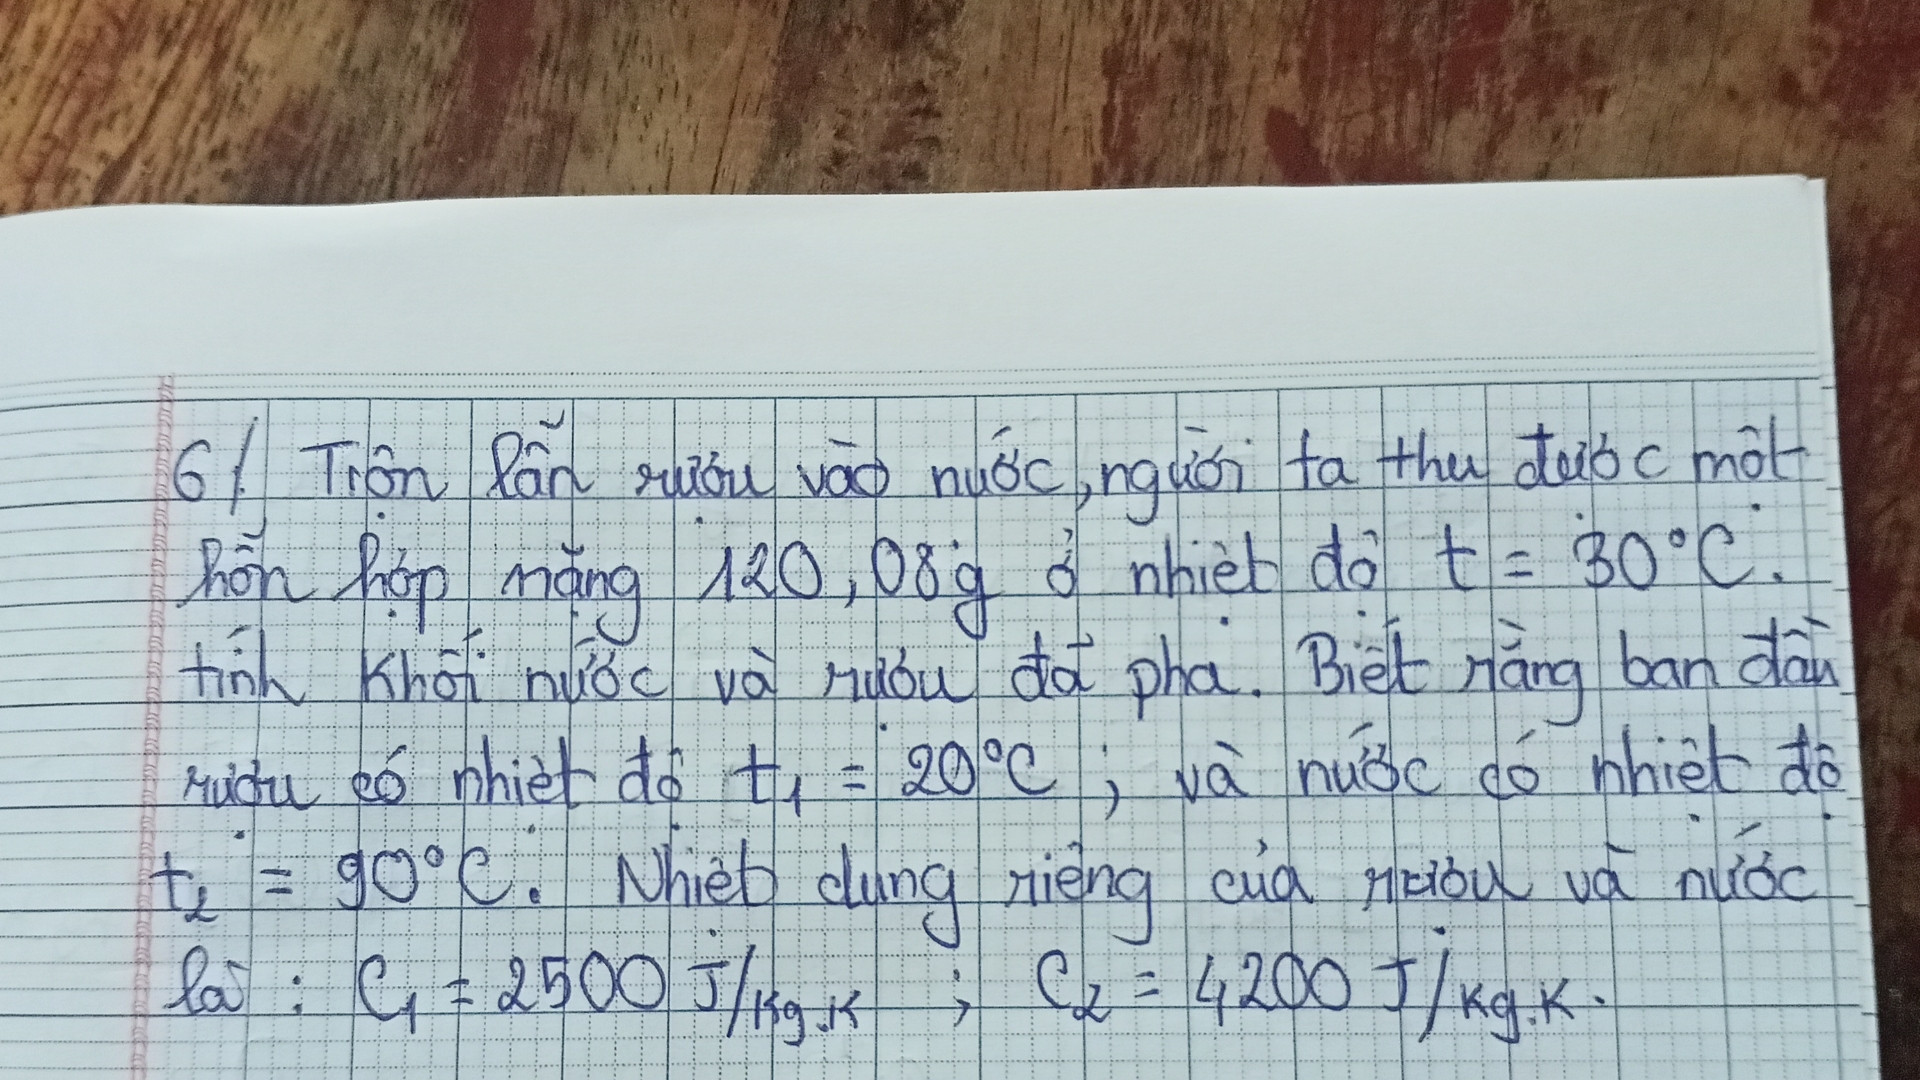 6/. Trộn lẫn rượu vào nước, người ta thu được một
hỗn hợp nặng 120,08g ở nhiệt độ t = 30°C.
tính khối nước và rượu đã pha. Biết rằng ban đầu
rượu có nhiệt độ t₁ = 20°C ; và nước có nhiệt độ
t₂ = 90°C. Nhiệt dung riêng của rượu và nước
là : C₁ = 2500 J/kg.K ; C₂ = 4200 J/kg.K.